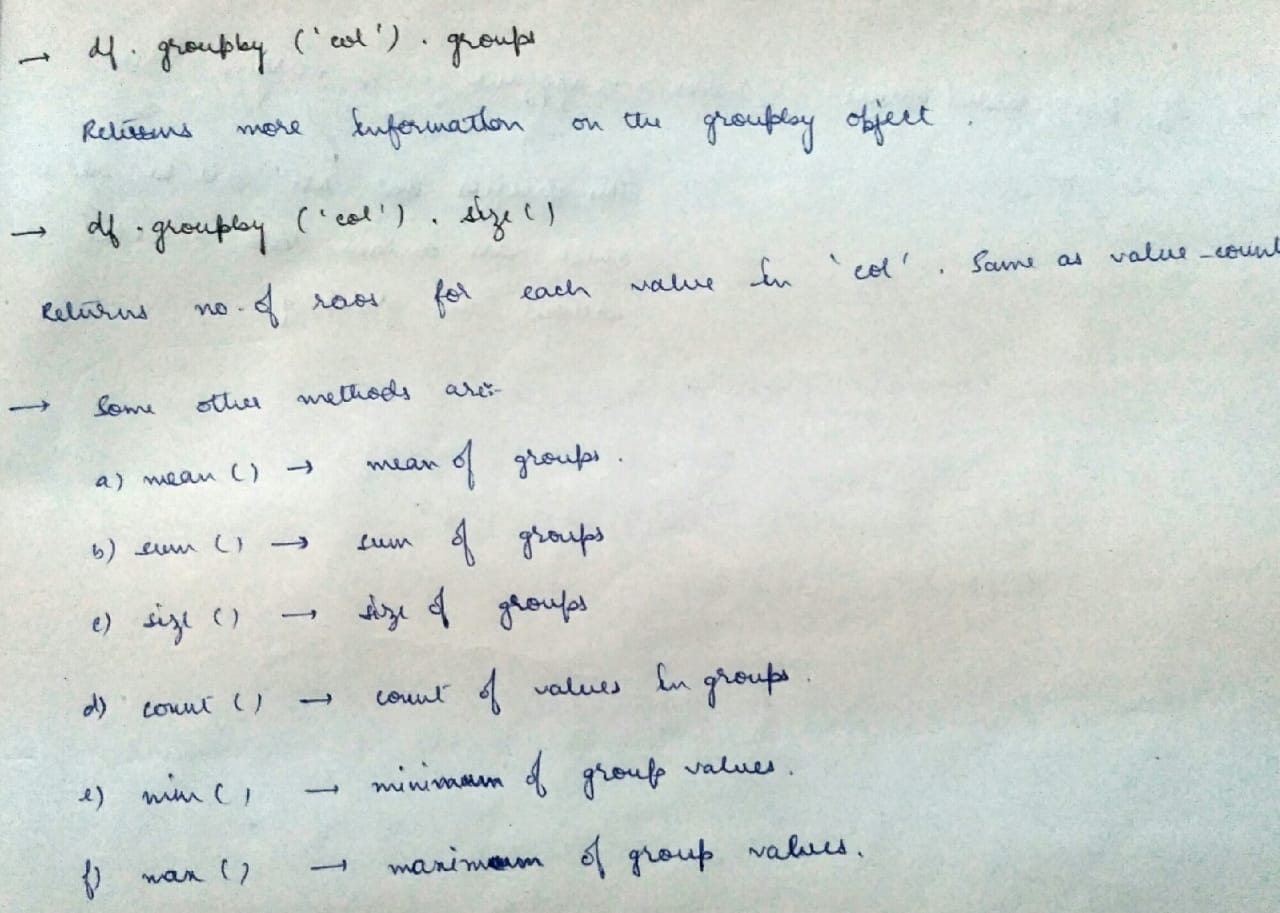 → df.groupby ('col').groups
Returns more information on the groupby object.
→ df.groupby ('col').size()
Returns no. of rows for each value in 'col'. Same as value_count
→ Some other methods are:-
a) mean () → mean of groups.
b) sum () → sum of groups
c) size () → size of groups
d) count () → count of values in groups.
e) min () → minimum of group values.
f) max () → maximum of group values.